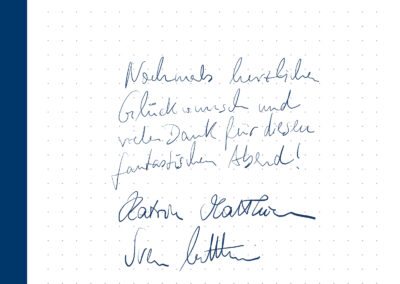 Nochmals herzlichen
Glückwunsch und
vielen Dank für diesen
fantastischen Abend!
Katrin
Sven